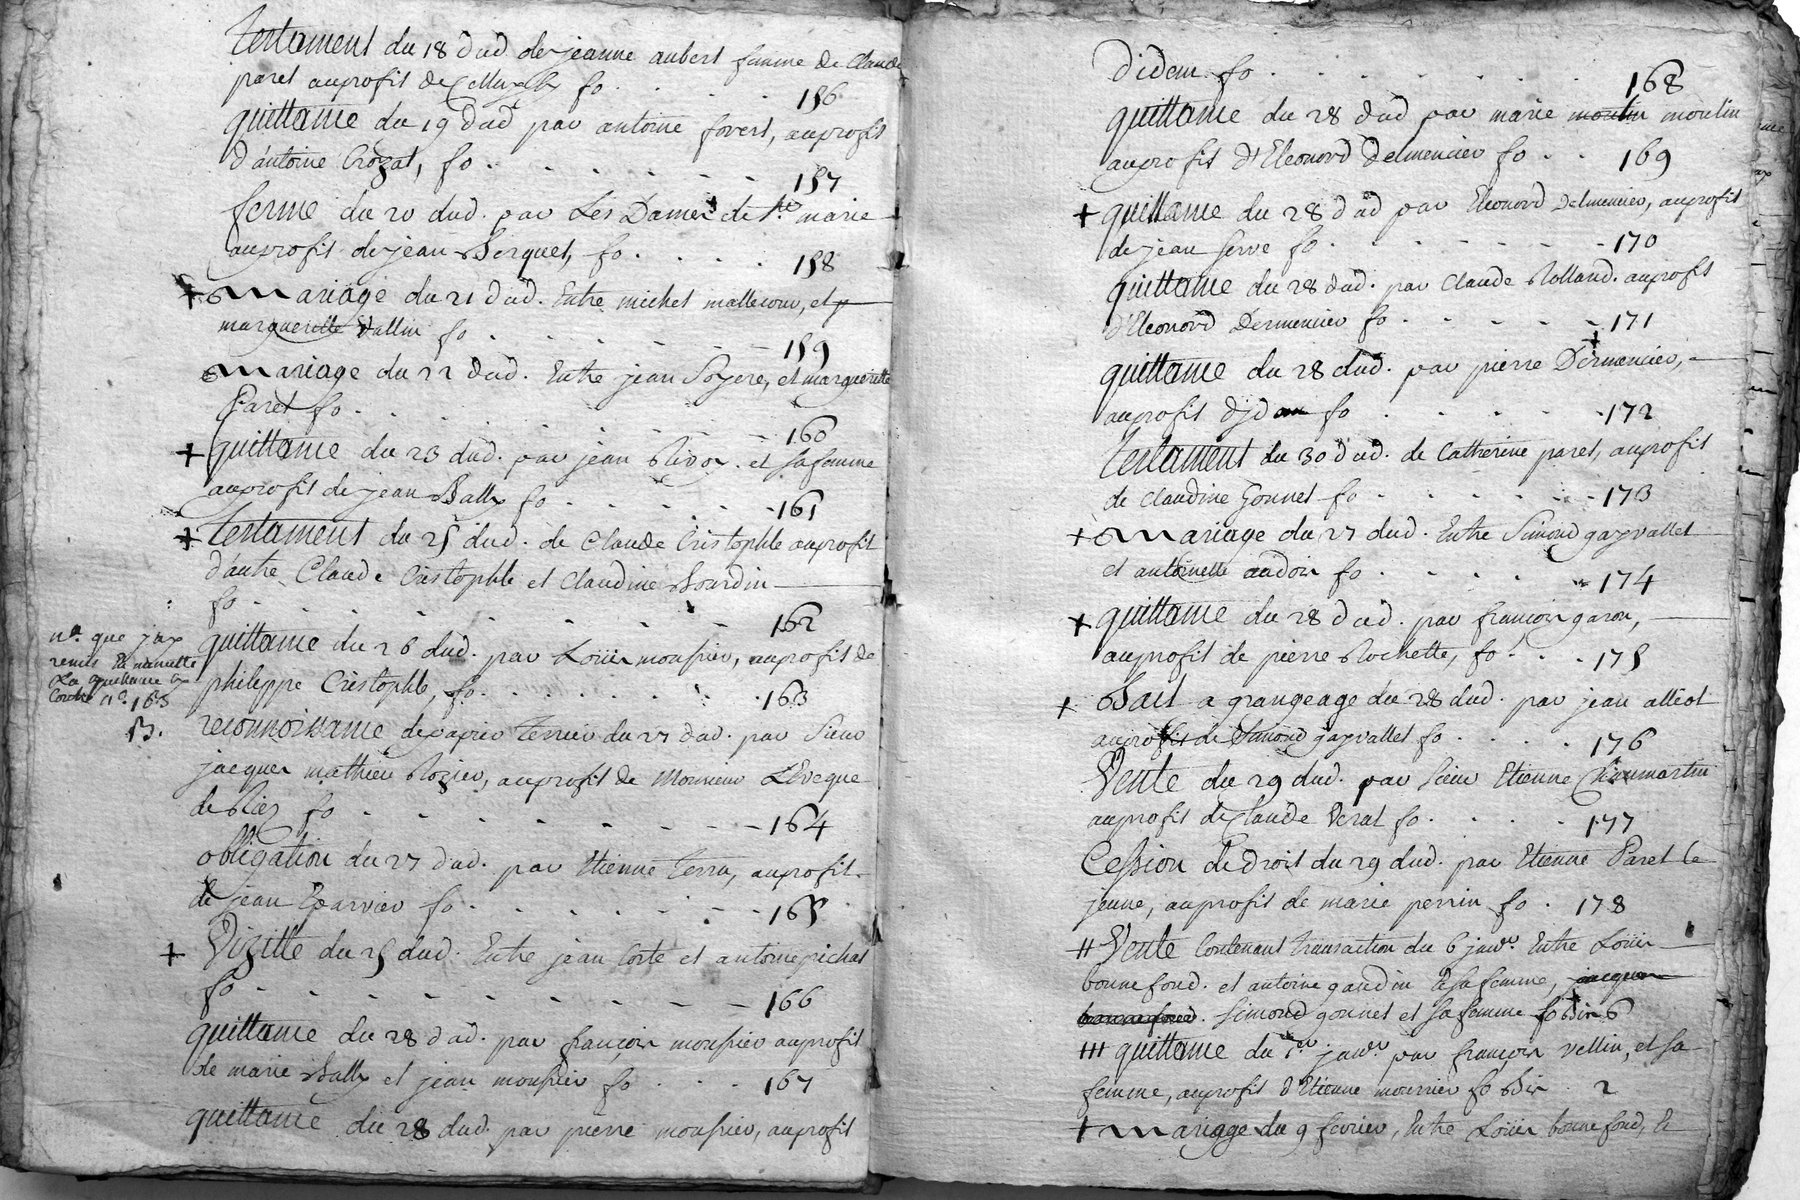 testament du 18 dud de jeanne aubert femme de Claude
paret auprofit de fo 156
quittance du 19 dud par antoine forest, auprofit
d'antoine Crozat, fo 157
ferme du 20 dud. par Les Dames de Ste marie
auprofit de jean Berquet, fo 158
+ mariage du 21 dud. Entre michel mallecour, et
marguerite Vallin fo 159
mariage du 22 dud. Entre jean Soyere, et marguerite
Paret fo 160
+ quittance du 23 dud. par jean Rivoy. et sa femme
auprofit de jean Bally fo 161
+ testament du 25 dud. de Claude Cristophle auprofit
d'autre Claude Cristophle et Claudine Bourdin
fo 162
quittance du 26 dud. par Loüis mousnier, auprofit de
philippe Cristophle, fo 163
na. que j'ay
remis la minutte
La quittance cy
Contre n° 163
B. reconnoissance de papier terrier du 27 dud. par Sieur
jacques mathieu Rozier, auprofit de Monsieur L'Eveque
de Riez fo 164
obligation du 27 dud. par Etienne Terra, auprofit
de jean Eparvier fo 165
+ Vizitte du 25 dud. Entre jean Corte et antoine pichat
fo 166
quittance du 28 dud. par françois mousnier auprofit
de marie Bally et jean mousnier fo 167
quittance du 28 dud. par pierre mousnier, auprofit
d'idem fo 168
quittance du 28 dud par marie moulin moulin
auprofit d'Eleonord Delmencier fo 169
+ quittance du 28 dud par Eleonord Delmencier, auprofit
de jean serve fo 170
quittance du 28 dud. par Claude Rolland. auprofit
d'Eleonord Dermencier fo 171
quittance du 28 dud. par pierre Dermencier,
auprofit d'idem fo 172
testament du 30 dud. de Catherine paret, auprofit
de Claudine Gonnet fo 173
+ mariage du 27 dud. Entre Simond gayvallet
et antoinette audoir fo 174
+ quittance du 28 dud. par françois garon,
auprofit de pierre Rochette, fo 175
+ Bail a grangeage du 28 dud. par jean alliot
auprofit de Simond gayvallet fo 176
Vente du 29 dud. par Sieur Etienne Chaumartin
auprofit de Claude Verat fo 177
Cession de Droit du 29 dud. par Etienne Paret le
jeune, auprofit de marie perrin fo 178
++ Vente Contenant transaction du 6 janvr. Entre Loüis
bonnefond. et antoine gaudin et sa femme, jacques
bonnefond. Simond gonnet et sa femme fo bis 6
+++ quittance du 1er janvr. par françois vellin, et sa
femme, auprofit d'Etienne mournier fo bis 2
+ mariage du 9 février, Entre Loüis bonnefond, et